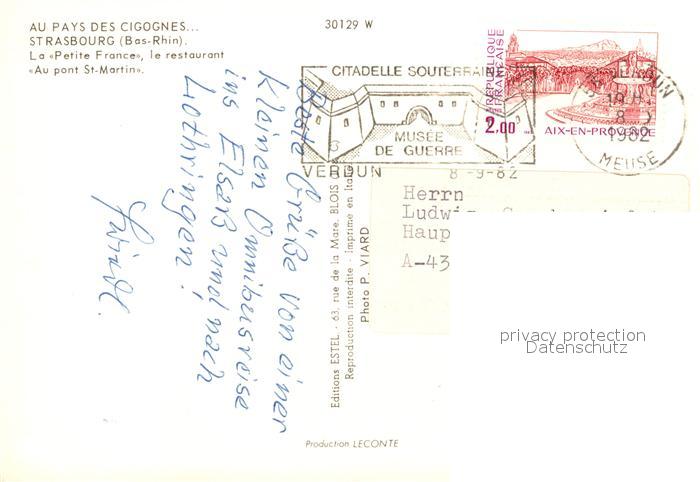 AU PAYS DES CIGOGNES...
STRASBOURG (Bas-Rhin).
La «Petite France», le restaurant
«Au pont St-Martin».
30129 W
CITADELLE SOUTERRAINE
MUSÉE
DE GUERRE
VERDUN 8-9-82
RÉPUBLIQUE
FRANÇAISE
2.00
AIX-EN-PROVENCE
VERDUN
19 H.
8
1982
MEUSE
Beste Grüße von einer
kleinen Omnibusreise
ins Elsaß und nach
Lothringen!
Editions ESTEL - 63, rue de la Mare, BLOIS
Reproduction interdite - Imprimé en Ital
Photo P. VIARD
Herrn
Ludwi
Haup
A-43
privacy protection
Datenschutz
Production LECONTE